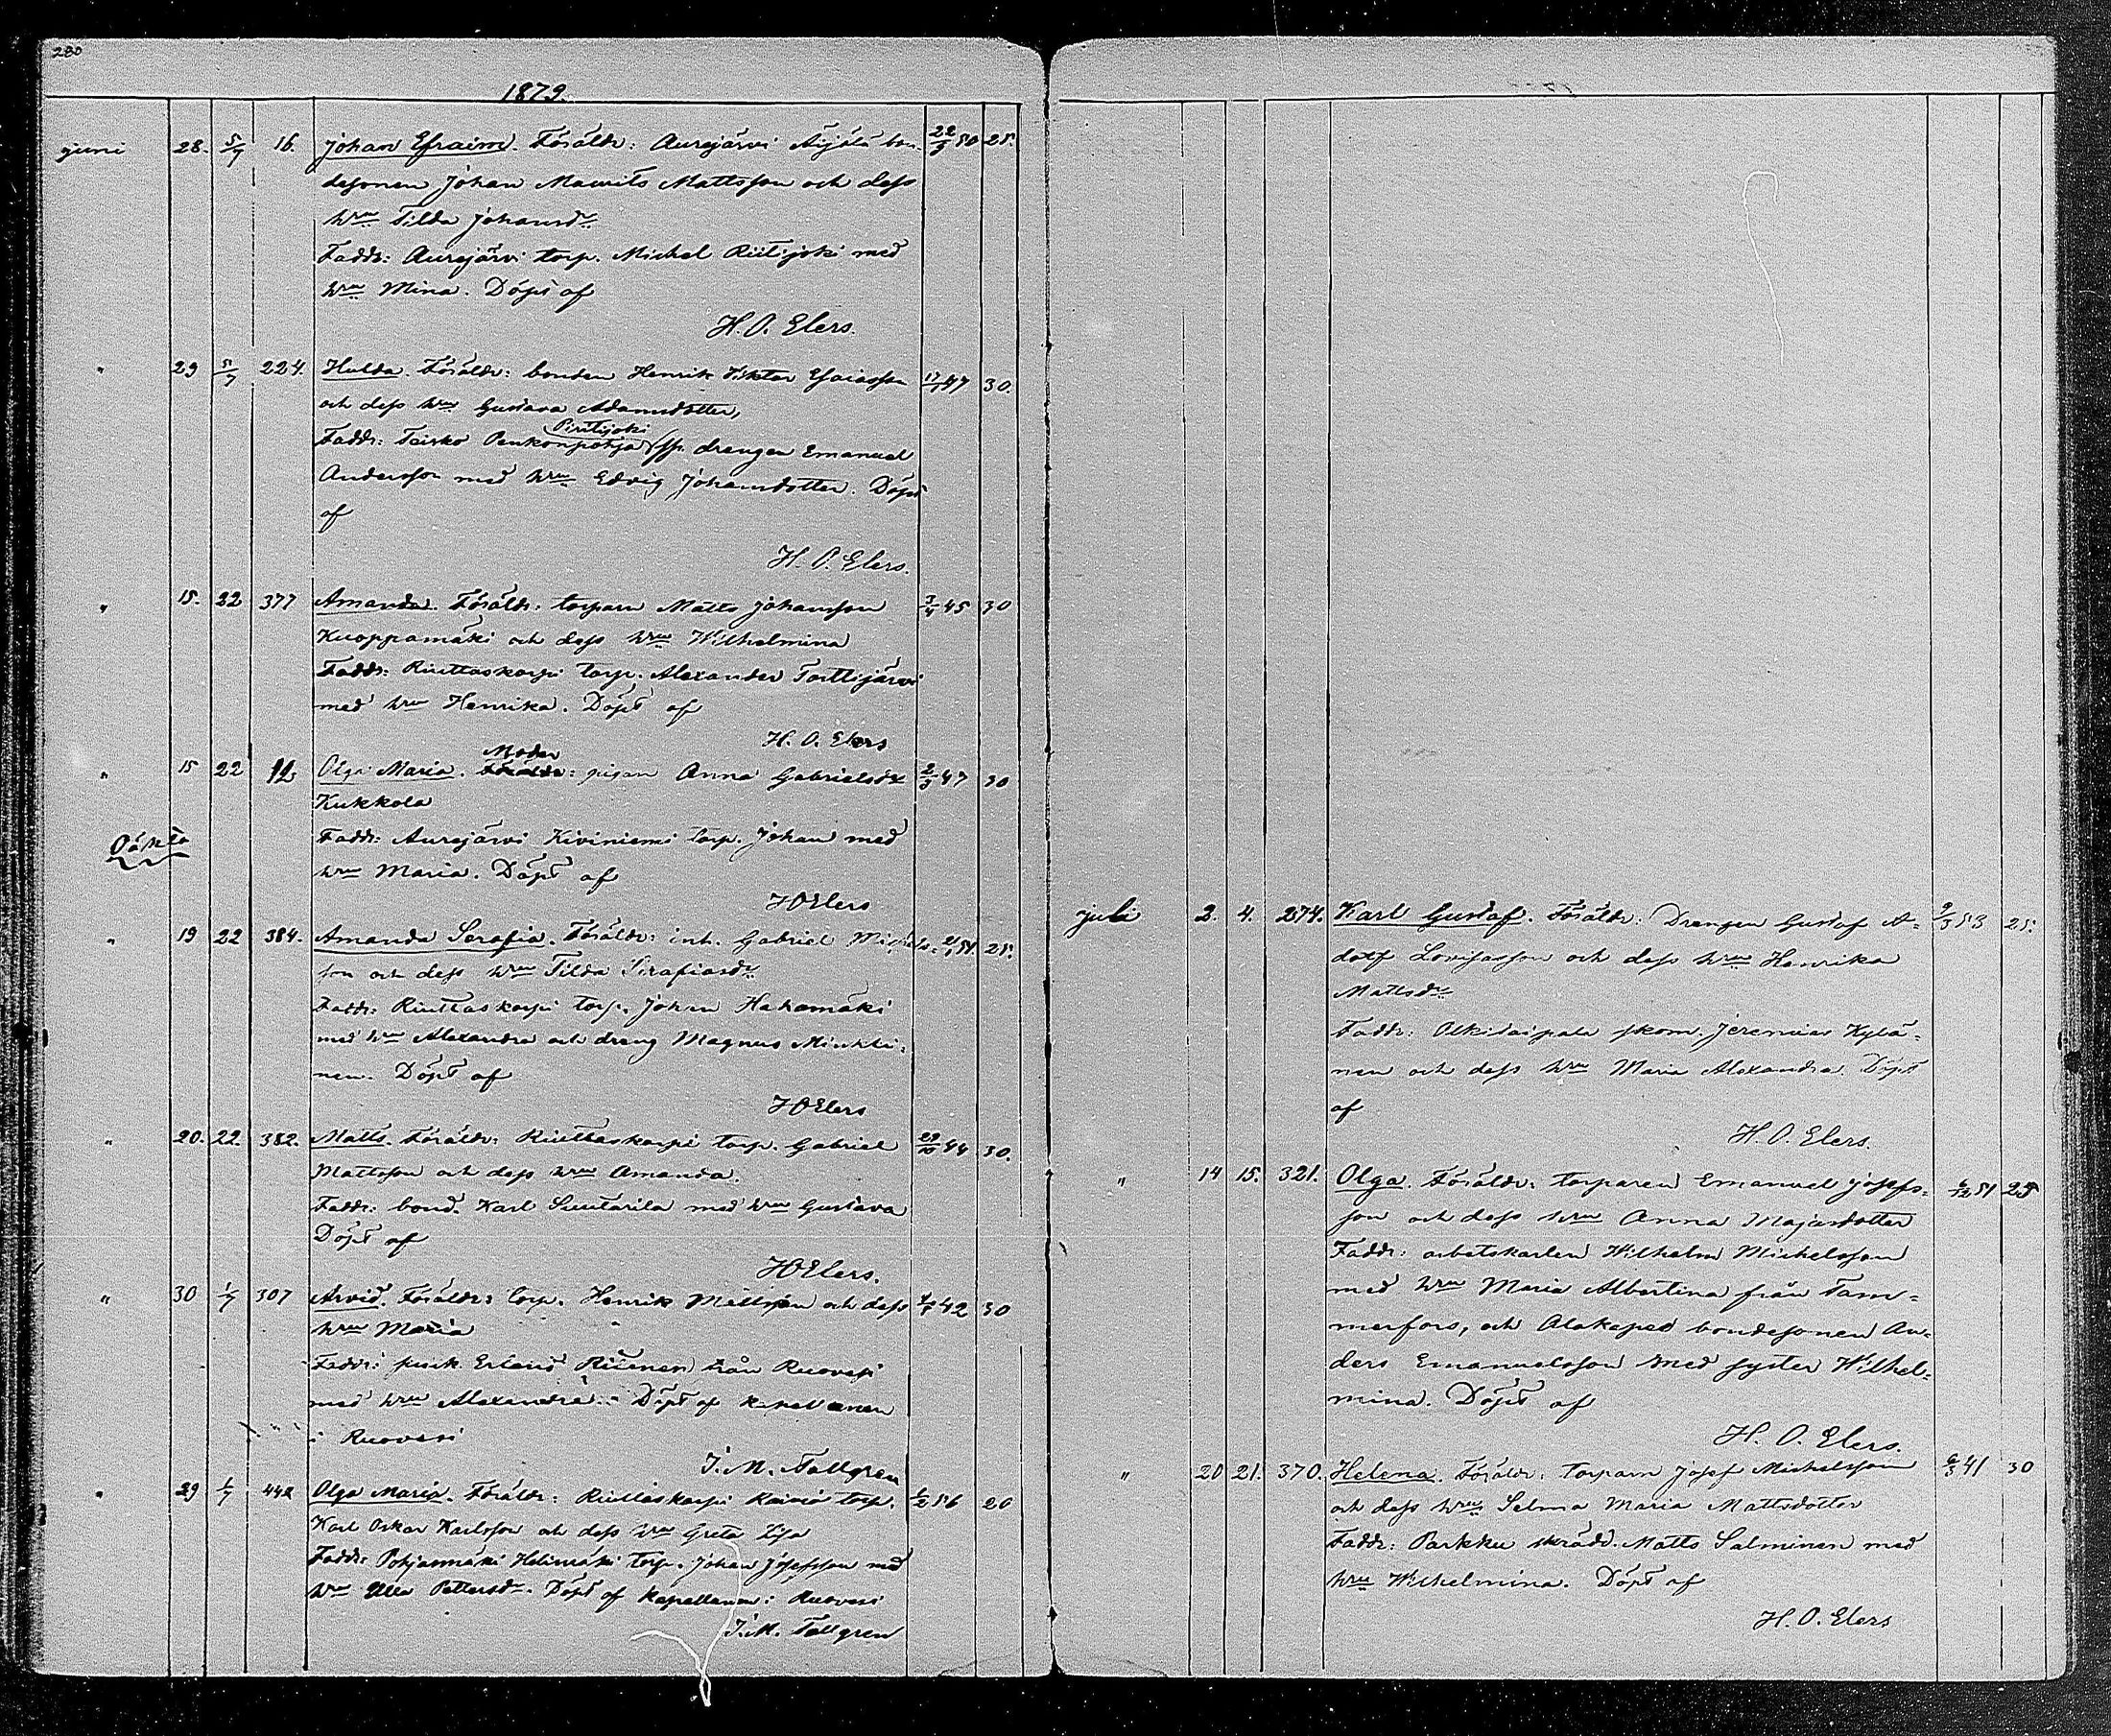 280
1879.
juni 28. 5/7 16. Johan Efraim. Föräldr: Aurejärvi Äijälä bon- 22/9 50 25.
desonen Johan Maurits Mattsson och dess
hru Tilda Johansdr
Faddr: Aurejärvi torp. Michel Riitijoki med
hru Mina. Döpt af
H. O. Elers.
" 29 5/7 224. Hulda. Föräldr: bonden Henrik Viktor Esaiasson 17/7 47 30.
och dess hru Gustava Adamsdotter,
Pirttijoki
Faddr: Teisko Penkonpohja sp. drengen Emanuel
Andersson med hru Edvig Johansdotter. Döpt
af
H. O. Elers.
" 15. 22 377 Amanda. Föräldr: torparn Matts Johansson 3/4 45 30
Kuoppamäki och dess hru Wilhelmina
Faddr: Riuttaskorpi torp. Alexander Torttijärvi
med hru Henrika. Döpt af
H. O. Elers
Moder
" 15 22 12 Olga Maria. Föräldr: pigan Anna Gabrielsdr 2/3 47 30
Kukkola
Faddr: Aurejärvi Kiviniemi torp. Johan med
hru Maria. Döpt af
HOElers
" 19 22 384. Amanda Serafia. Föräldr: inh. Gabriel Michels- 51. 25.
son och dess hru Tilda Serafiasdr
Faddr: Riuttaskorpi torp. Johan Hahamäki
med hru Alexandra och dreng Magnus Miehki-
nen. Döpt af
HOElers
" 20. 22 382. Matts. Föräldr: Riuttaskorpi torp. Gabriel 29/10 44 30.
Mattsson och dess hru Amanda.
Faddr: bond. Karl Suutarila med hru Gustava
Döpt af
HOElers.
" 30 1/7 307 Arvid. Föräldr: torp. Henrik Mattsson och dess 42 30
hru Maria
Faddr: Erland från Ruovesi
med hru Alexandra. Döpt af kapellanen
i Ruovesi
J. M. Tallgren
" 29 1/7 442 Olga Maria. Föräldr: Riuttaskorpi torp. 1/2 56 20
Karl Oskar Karlsson och dess hru Greta Lisa
Faddr: Pohjanmäki Helinmäki torp. Johan Josefsson med
hru Ulla Pettersdr. Döpt af kapellanen i Ruovesi
J. M. Tallgren
juli 2. 4. 274. Karl Gustaf. Föräldr: Drengen Gustaf A- 9/5 53 25.
dolf Lovisasson och dess hru Henrika
Mattsdr
Faddr: Olkitaipale skom. Jeremias Kylä-
nen och dess hru Maria Alexandra. Döpt
af
H. O. Elers.
" 14 15. 321. Olga. Föräldr: torparen Emanuel Josefs- 6/12 51 25
son och dess hru Anna Majasdotter
Faddr: arbetskarlen Wilhelm Michelsson
med hru Maria Albertina från Tam-
merfors, och Alakapee bondesonen An-
ders Emanuelsson med syster Wilhel-
mina. Döpt af
H. O. Elers.
" 20 21. 370. Helena. Föräldr: torparn Josef Michelsson 6/3 41 30
och dess hru Selma Maria Mattsdotter
Faddr: Parkku skrädd. Matts Salminen med
hru Wilhelmina. Döpt af
H. O. Elers